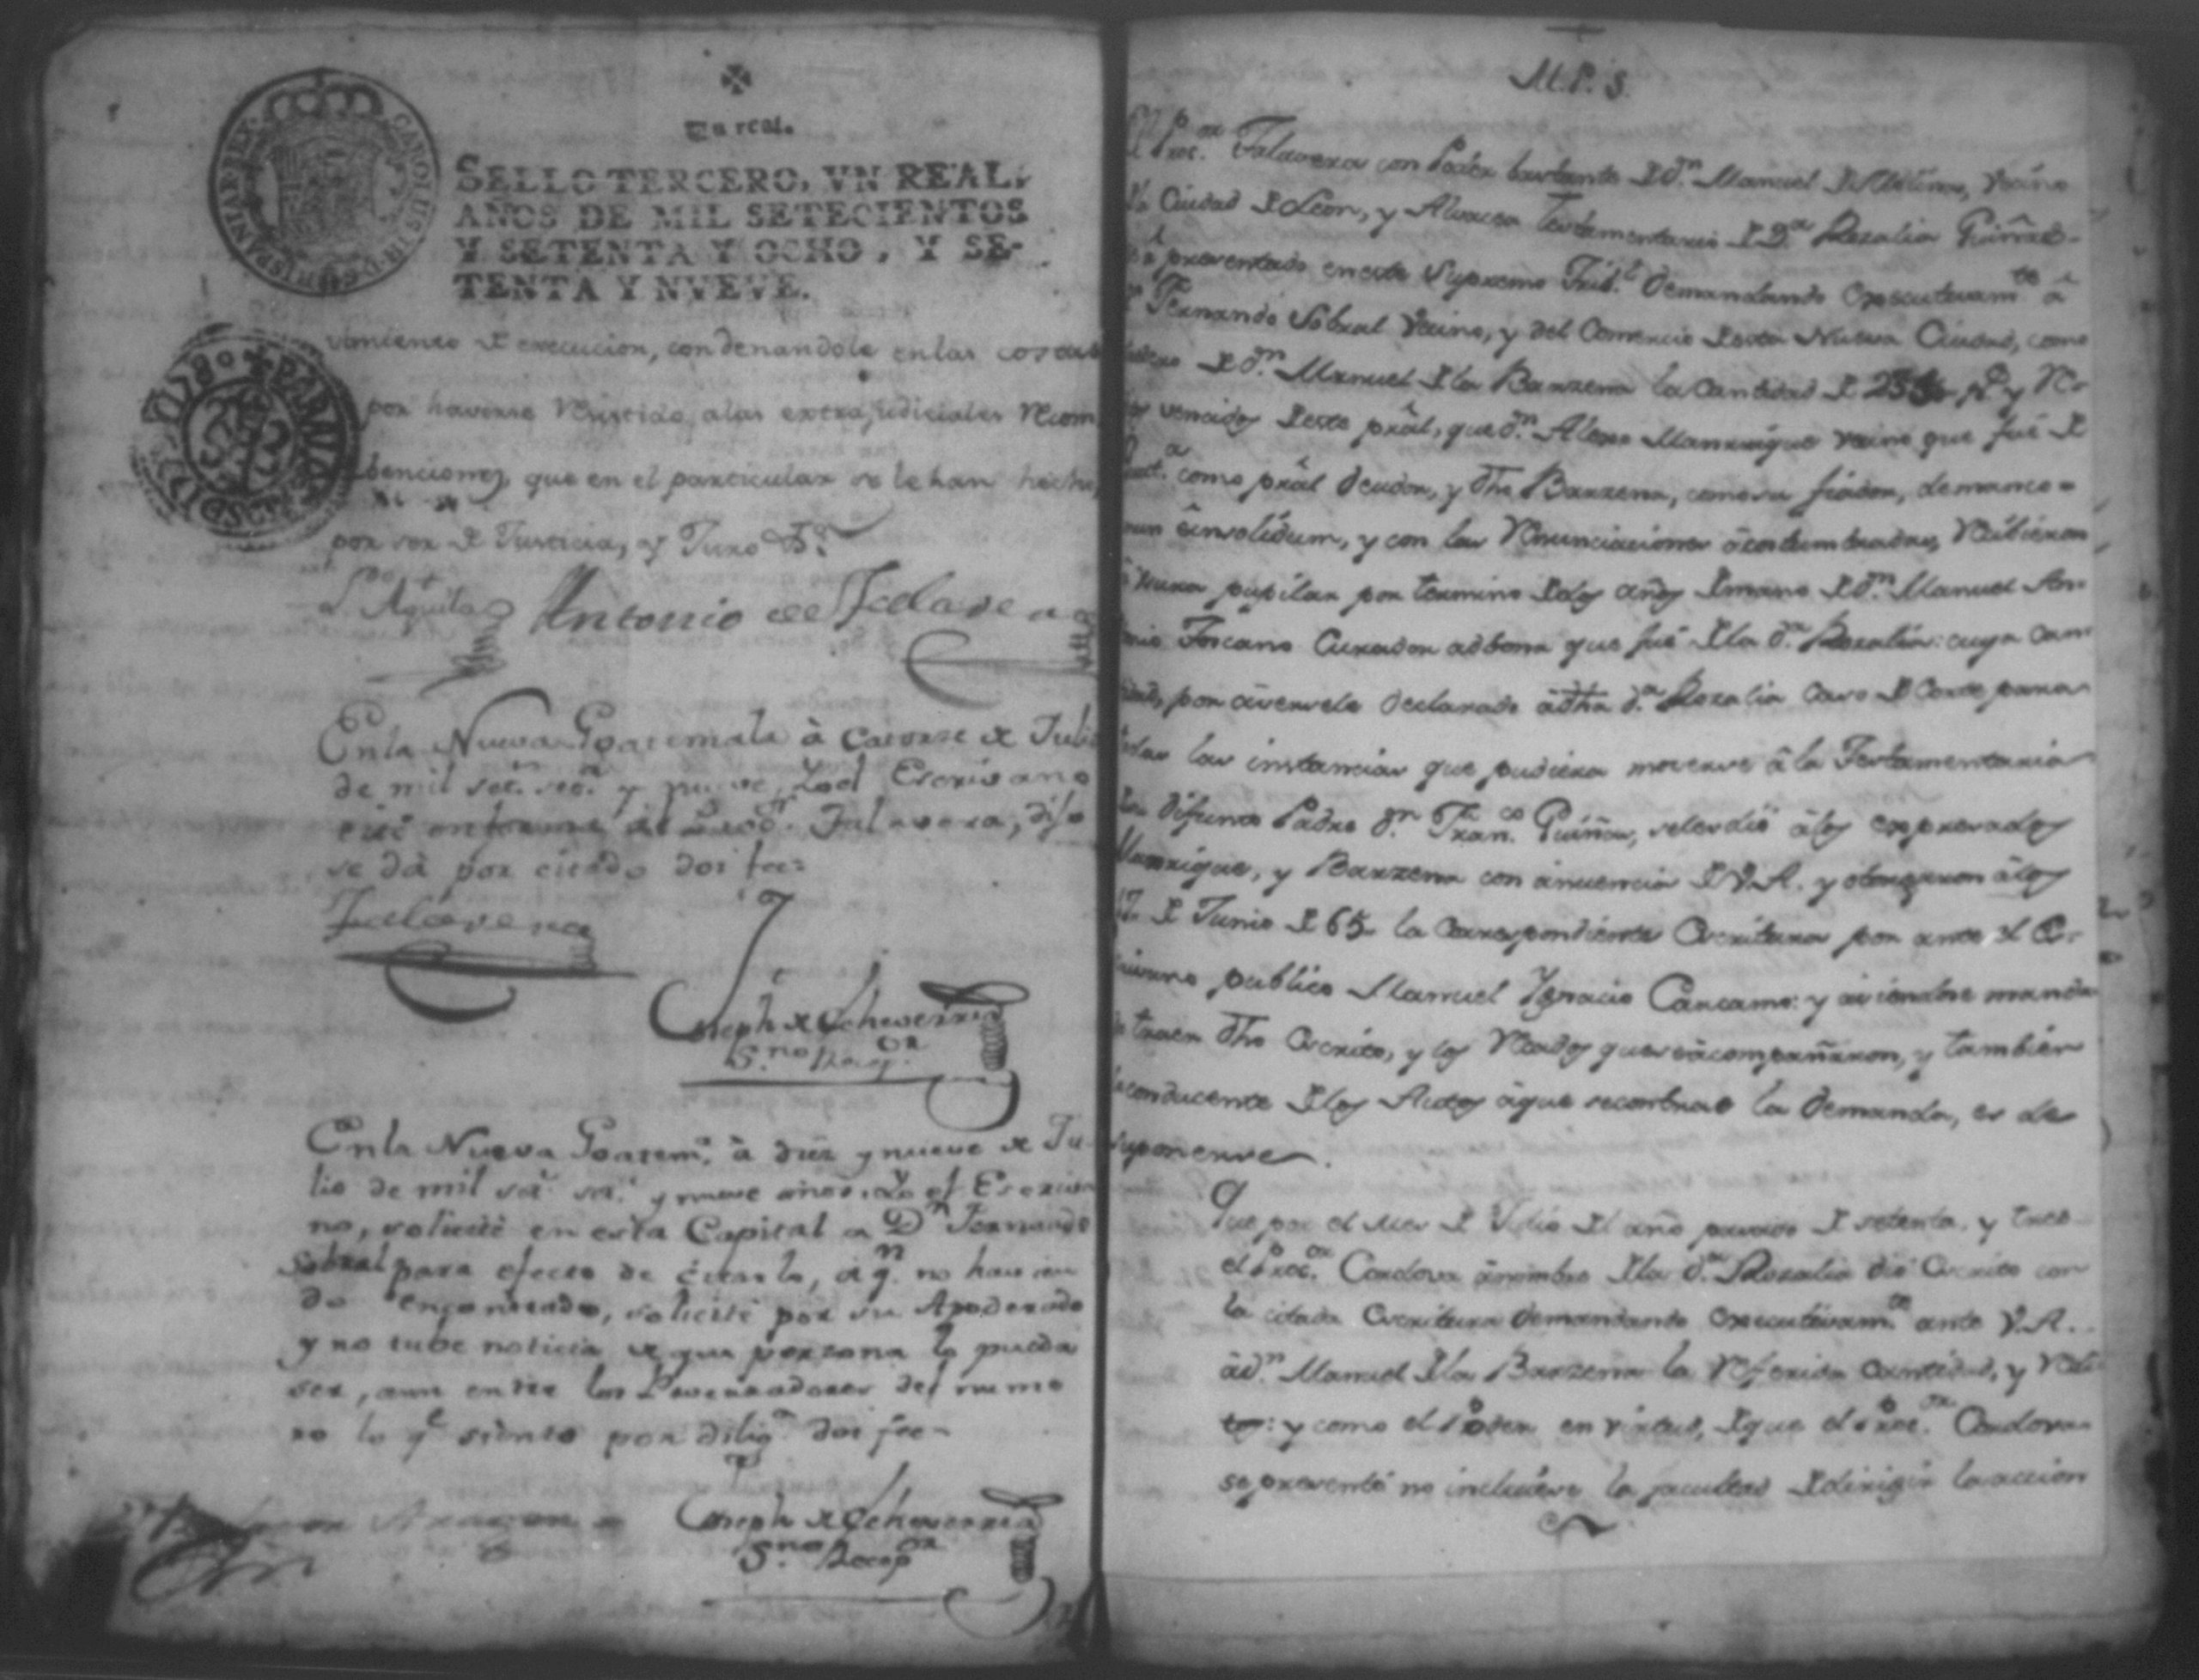 Un real.
SELLO TERCERO, VN REAL,
AÑOS DE MIL SETECIENTOS
Y SETENTA Y OCHO, Y SE-
TENTA Y NVEVE.
CAROLUS III D.G. HISPANIAR REX
vimiento de execucion, condenandole en las costas
por haverse resistido, alas extrajudiciales recom
benciones, que en el particular se le han hecho,
por ser de Justicia, y Juro &.a
L.do Aguilar Antonio de Talavera
En la Nueva Goatemala à catorse de Julio
de mil set.s set.a y nueve, Yo el Escrivano
cité en forma al Proc.or Talavera, dijo
se dà por citado doi fee=
Talavera
Joseph de Echeverria
S.no Recep.or
En la Nueva Goatem.a à diez y nueve de Ju-
lio de mil set.s set.a y nueve años. Yo el Escriva
no, solicité en esta Capital a D.n Fernando
Sobral para efecto de citarlo, à q.n no havien
do encontrado, solicité por su Apoderado
y no tube noticia de que persona lo pueda
ser, aun entre los Procuradores del nume
ro lo q.e siento por dilig.a doi fee=
Joseph de Echeverria
S.no Recep.or
M.P.S.
El Proc.or Talavera con Poder bastante de d.n Manuel de Molina, vecino
Ciudad de Leon, y Alvacea Testamentario de D.a Rosalia Guiñas-
presentado en este Supremo Trib.l demandando executivam.te â
Fernando Sobral vecino, y del Comercio desta Nueva Ciudad, como
de d.n Manuel de la Barzena la cantidad de p.s y re-
vencidos deste prâl, que d.n Alexo Manrrique vecino que fué de
como prâl deudor, y dho Barzena, como su fiador, demanco=
mun êinsolidum, y con las renunciaciones âcostumbradas, recibieron
pupilar por termino de dos años de mano de d.n Manuel An-
tonio Toscano Curador adbona que fué de la d.a Rosalia: cuya can-
por averse declarado âdha d.a Rosalia Caso de Corte para
todas las instancias que pudiera moverse â la Testamentaria
difunto Padre d.n Fran.co Guiñas, selesdiò âlos expresados
Manrrique, y Barzena con anuencia de V.A. y otorgaron âlos
17 de Junio de 65 la correspondiente Escritura por ante el Es-
crivano publico Manuel Ygnacio Carcamo: y aviendose manda
traer dho Escrito, y los que acompañaron, y tambien
conducente de los Autos âque secontrae la demanda, es de
suponerse.
Que por el mes de Julio del año pasado de setenta y tres
el Proc.or Cordova ânombre de la d.a Rosalia dió Escrito con
la citada Escritura demandando executivam.te ante V.A.
âd.n Manuel de la Barzena la referida cantidad, y redi
tos: y como el Poder en virtud, de que el Proc.or Cordova
sepresentó no incluiese la facultad de dirigir la accion